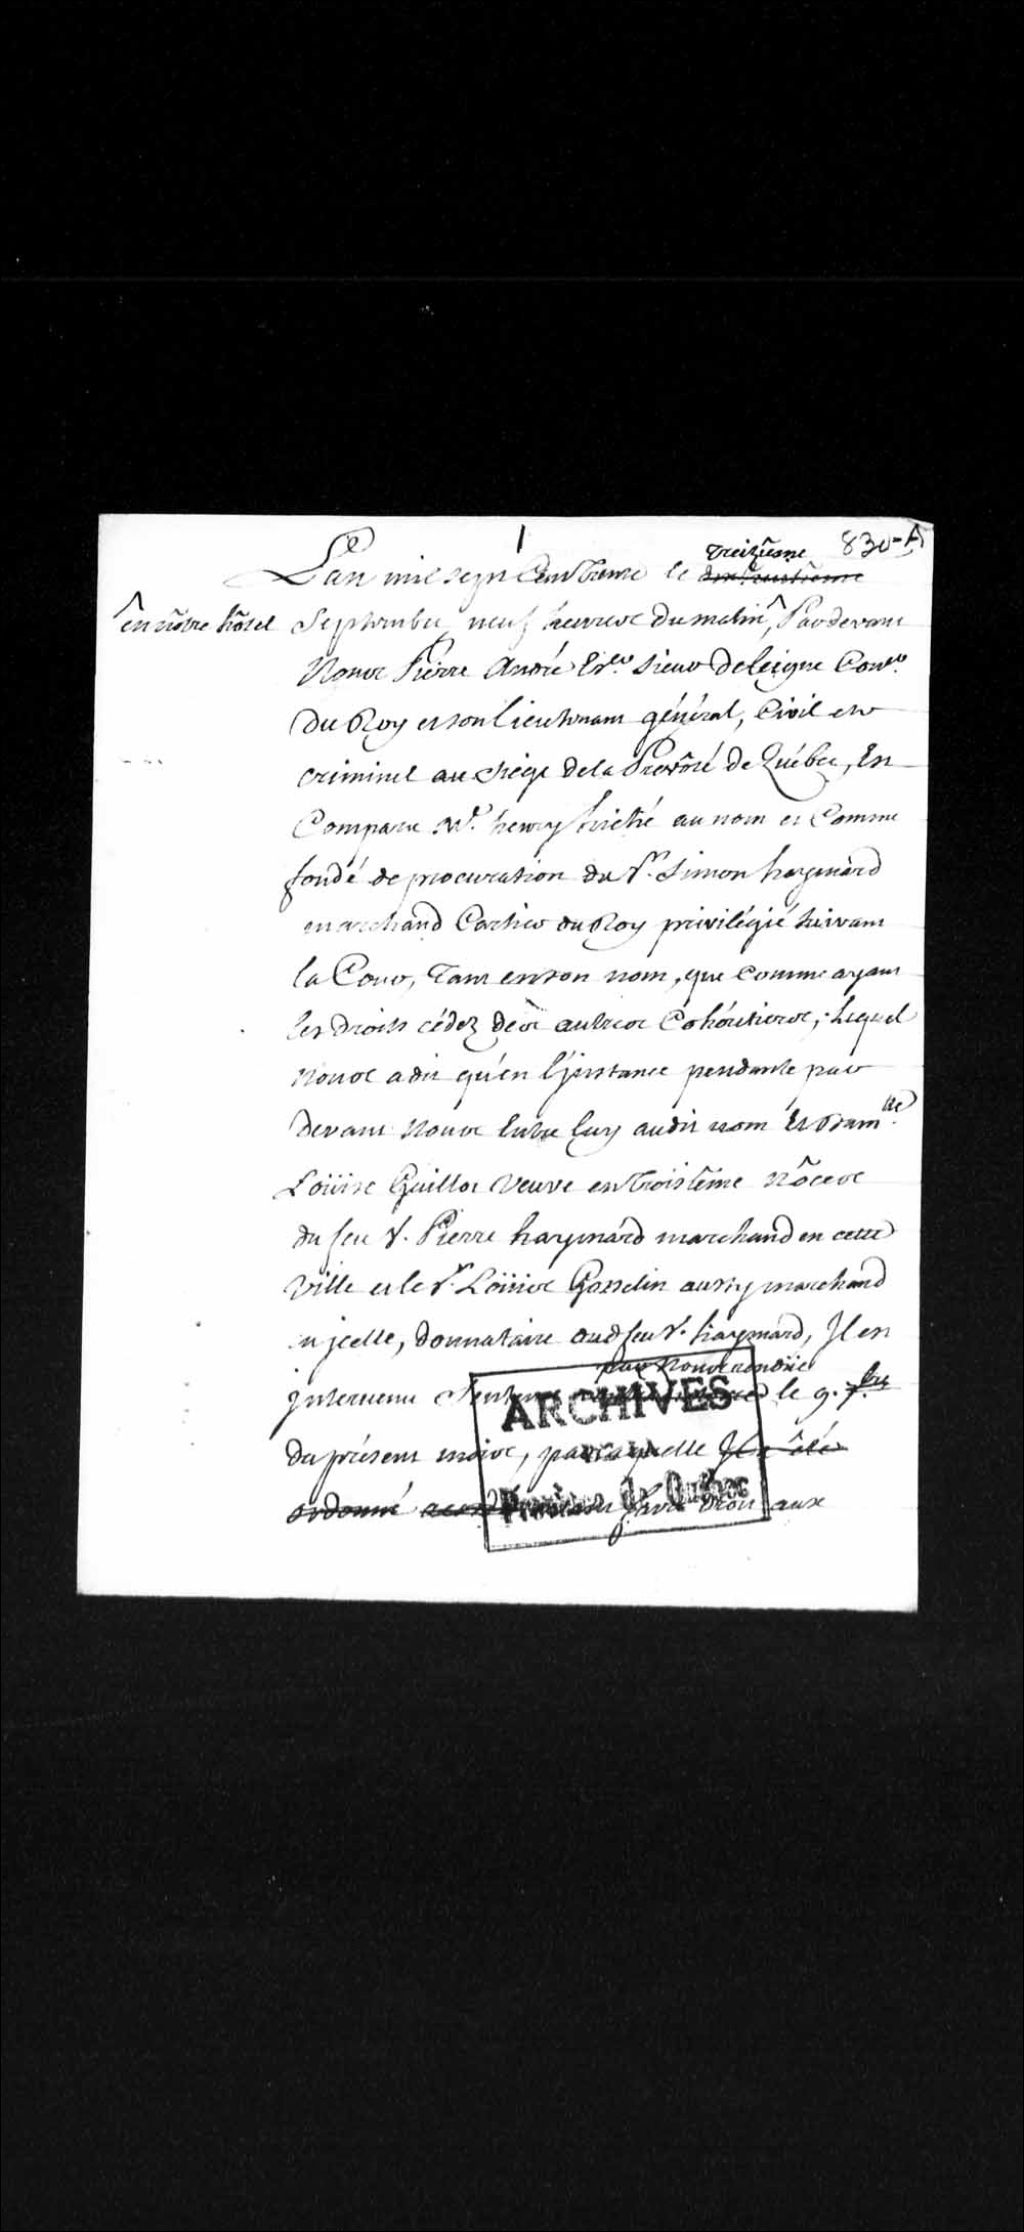 1
830-A
treiziesme
L'an mil sept Cent Trente le
en nôtre hôtel
Septembre neuf heures du matin, Pardevant
Nous Pierre André Es.er Sieur Deleigne Con.er
Du Roy et son Lieutenant général, Civil et
criminel au siège de la Prévôté de Québec, Est
Comparu M.e henry hiché au nom et Comme
fondé de procuration du S.r Simon haymard
marchand Cartier du Roy privilégié suivant
la Cour, Tant en son nom, que Comme ayant
les Droits cédez de ses autres Cohéritiers; Lequel
Nous a dit qu'en l'jnstance pendante par
devant Nous Entre Luy audit nom Et Dam.lle
Loüise Guillot Veuve en troisiême Nôces
du feu S. Pierre haymard marchand en cette
Ville et le S.r Loüis Gosselin aussy marchand
en jcelle, Donnataire dud feu S. haymard, Il est
par Nous rendüe
jntervenu Sentence le 9.
du présent mois, par laquelle Il a été
ordonné droit aux
ARCHIVES
Province de Québec